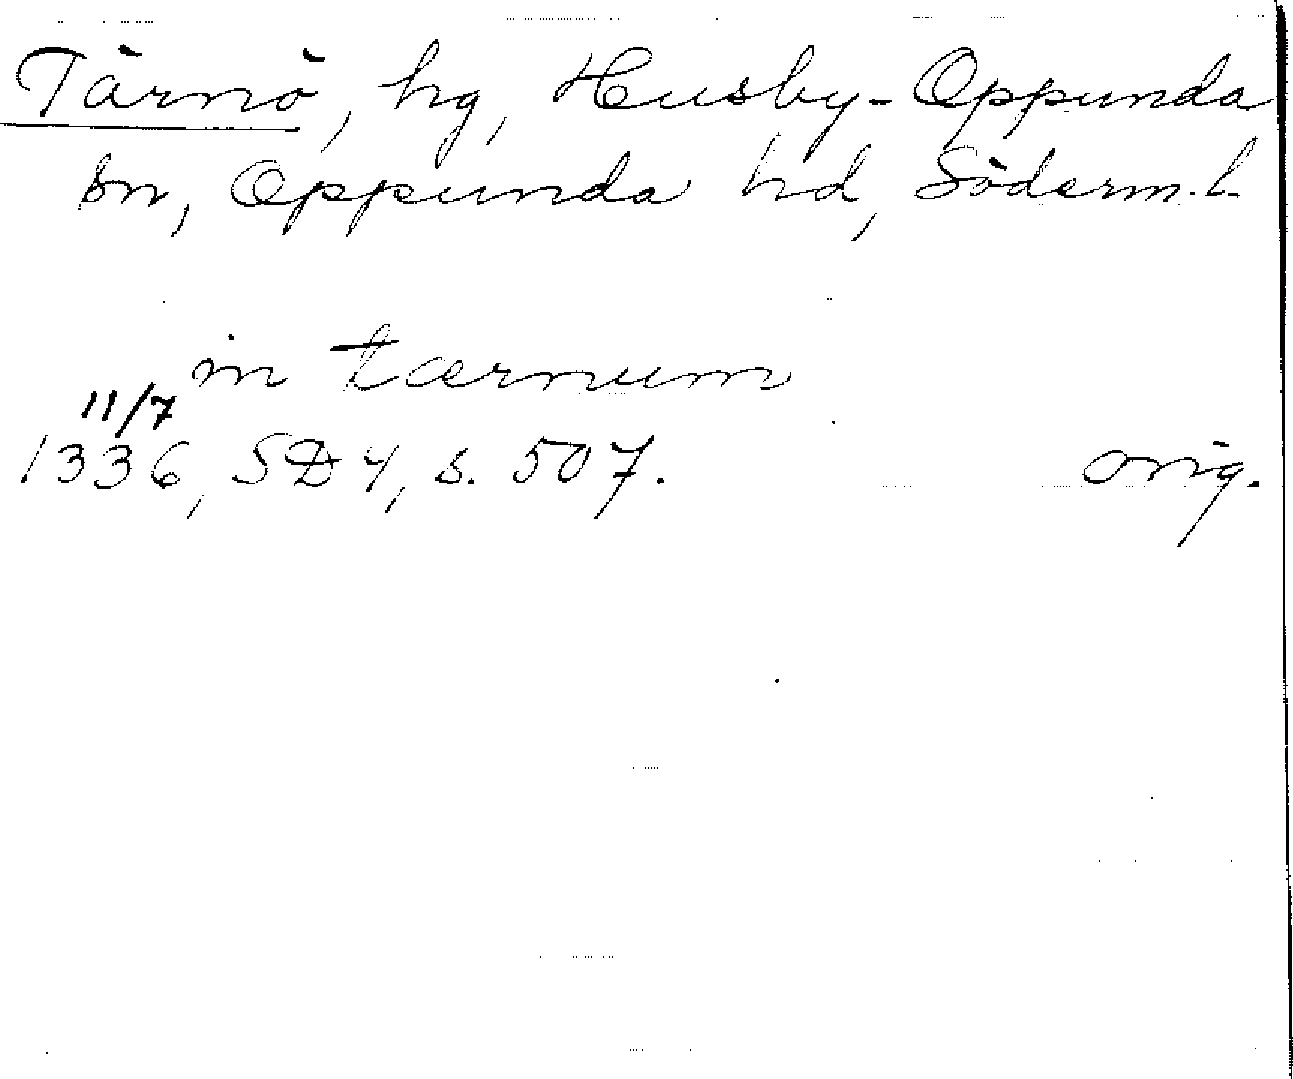 Tärnö, hg, Husby-Oppunda
sn, Oppunda hd, Söderm.l.
in tærnum
11/7
1336, SD 4, s. 507. orig.